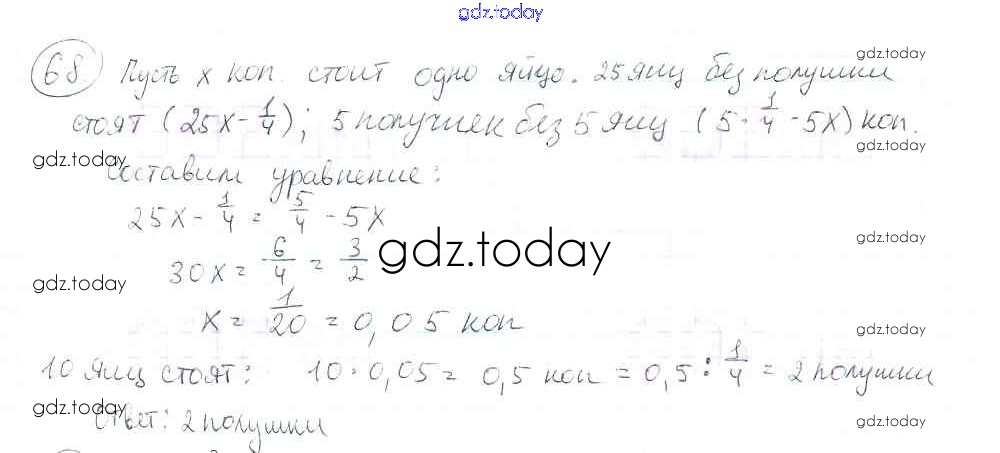 gdz.today
68. Пусть x коп. стоит одно яйцо. 25 яиц без полушки
gdz.today
стоят (25x - 1/4); 5 получиек без 5 яиц (5 · 1/4 - 5x) коп.
gdz.today
gdz.today
Составим уравнение:
25x - 1/4 = 5/4 - 5x
gdz.today
gdz.today
30x = 6/4 = 3/2
gdz.today
x = 1/20 = 0,05 коп
gdz.today
10 яиц стоят: 10 · 0,05 = 0,5 коп = 0,5 : 1/4 = 2 полушки
gdz.today
Ответ: 2 полушки
gdz.today